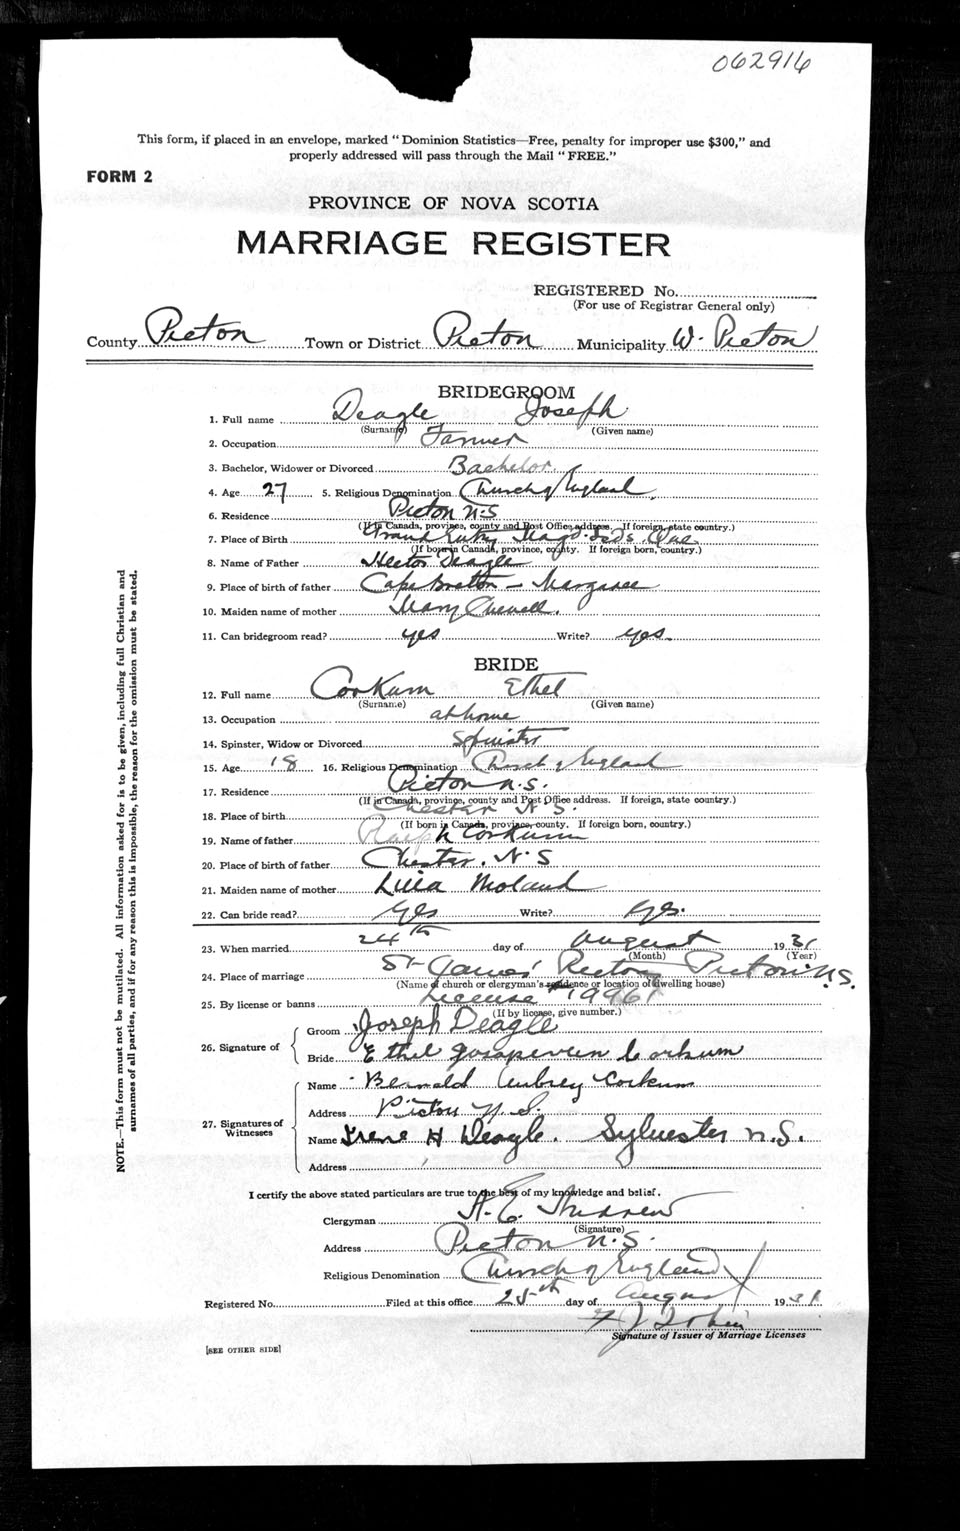 062916
This form, if placed in an envelope, marked "Dominion Statistics—Free, penalty for improper use $300," and
properly addressed will pass through the Mail "FREE."
FORM 2
PROVINCE OF NOVA SCOTIA
MARRIAGE REGISTER
REGISTERED No.
(For use of Registrar General only)
County Pictou Town or District Pictou Municipality W. Pictou
BRIDEGROOM
1. Full name Deagle Joseph
(Surname) (Given name)
2. Occupation Farmer
3. Bachelor, Widower or Divorced Bachelor
4. Age 27 5. Religious Denomination Church of England
6. Residence Pictou N.S
(If in Canada, province, county and Post Office address. If foreign, state country.)
7. Place of Birth Grand Que
(If born in Canada, province, county. If foreign born, country.)
8. Name of Father Hector Deagle
9. Place of birth of father Cape Breton — Margaree
10. Maiden name of mother Mary
11. Can bridegroom read? yes Write? yes.
BRIDE
12. Full name Corkum Ethel
(Surname) (Given name)
13. Occupation at home
14. Spinster, Widow or Divorced Spinster
15. Age 18 16. Religious Denomination Church of England
17. Residence Pictou N.S.
(If in Canada, province, county and Post Office address. If foreign, state country.)
18. Place of birth Chester N S.
(If born in Canada, province, county. If foreign born, country.)
19. Name of father Ralph Corkum
20. Place of birth of father Chester. N.S
21. Maiden name of mother
22. Can bride read? yes Write? yes.
23. When married 24th day of August 1931
(Month) (Year)
24. Place of marriage St James' Rectory Pictou N.S.
(Name of church or clergyman's residence or location of dwelling house)
25. By license or banns License
(If by license, give number.)
26. Signature of
Groom Joseph Deagle
Bride Ethel Corkum
27. Signatures of
Witnesses
Name Aubrey Corkum
Address Pictou N.S.
Name Irene H Deagle. Sylvester N.S.
Address
I certify the above stated particulars are true to the best of my knowledge and belief.
Clergyman H. E. Andrew
(Signature)
Address Pictou N.S.
Religious Denomination Church of England
Registered No. Filed at this office 25th day of August 1931
Signature of Issuer of Marriage Licenses
[SEE OTHER SIDE]
NOTE.—This form must not be mutilated. All information asked for is to be given, including full Christian and
surnames of all parties, and if for any reason this is impossible, the reason for the omission must be stated.